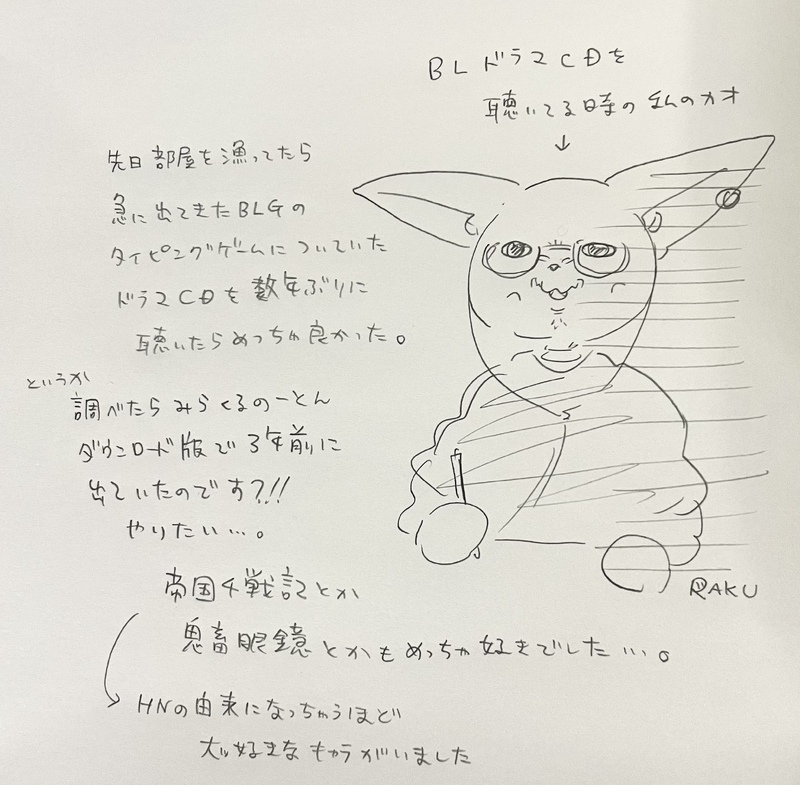 BLドラマCDを
聴いてる時の私のカオ
↓
先日部屋を漁ってたら
急に出てきたBLGの
タイピングゲームについていた
ドラマCDを数年ぶりに
聴いたらめっちゃ良かった。
というか
調べたらみらくるのーとん
ダウンロード版で3年前に
出ていたのです?!!
やりたい…。
帝国千戦記とか
鬼畜眼鏡とかもめっちゃ好きでした…。
HNの由来になっちゃうほど
大ッ好きなキャラがいました
RAKU